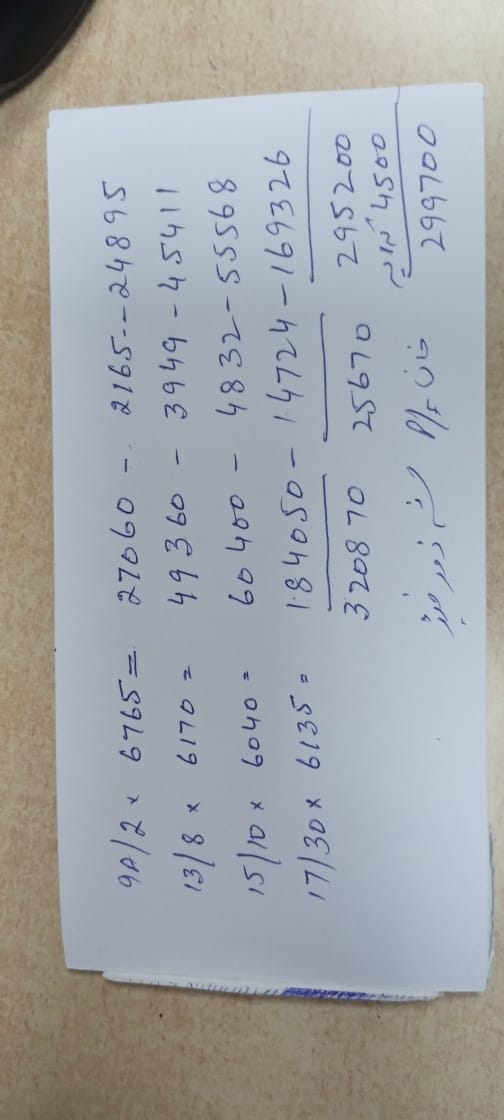 9A/2 x 6765 = 27060 - 2165 -- 24895
13/8 x 6170 = 49360 - 3949 - 45411
15/10 x 6040 = 60400 - 4832 - 55568
17/30 x 6135 = 184050 - 14724 - 169326
320870 25670 295200
4500
P/F 299700